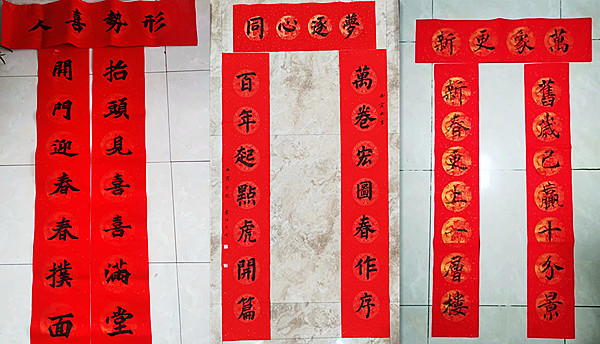 形勢喜人
抬頭見喜喜滿堂
開門迎春春撲面
同心逐夢
萬卷宏圖春作序
百年起點虎開篇
萬象更新
舊歲已贏十分景
新春更上一層樓